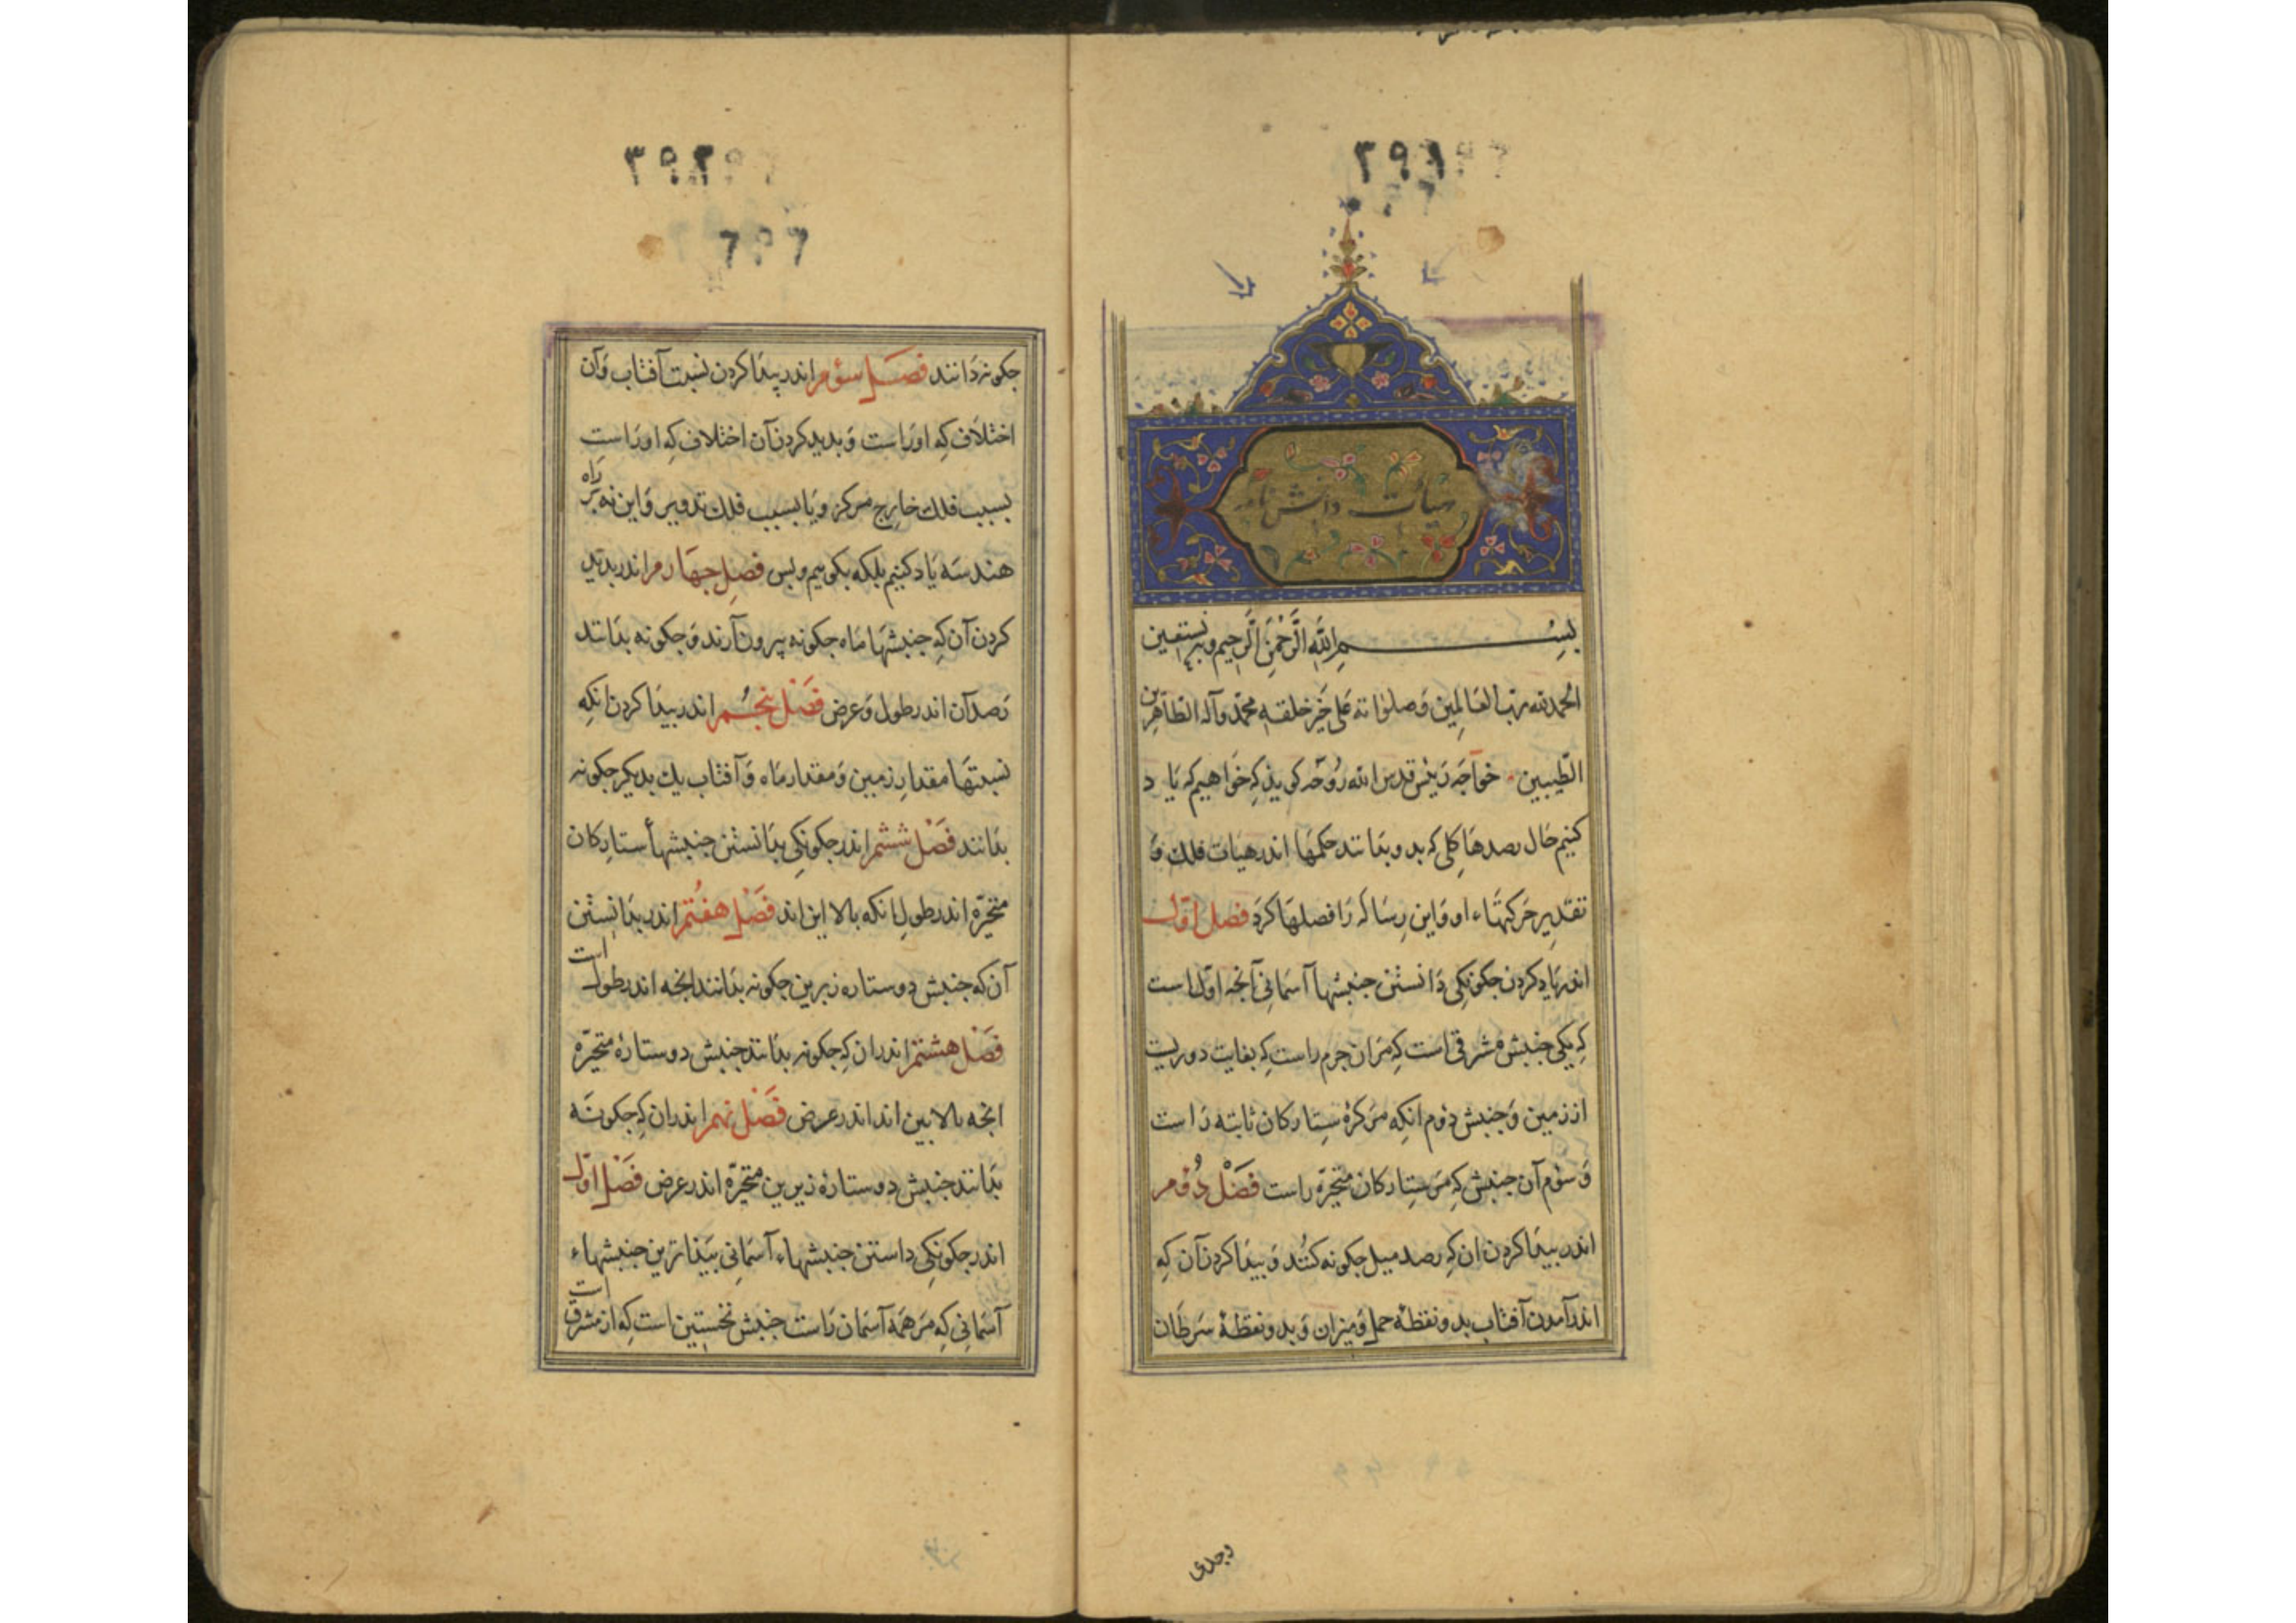 ۲۹۱
هیأت دانش نامه
بسم الله الرَّحمٰنِ الرَّحیم وبه نستعین
الحمد لله ربّ العَالمِین وَصلوٰاته عَلی خَیرِ خلقه محمّد وآله الطّاهِرین
الطّیبین خواجَه رَئیس قدس الله رُوحَه کوید که خوَاهیم که یَا د
کنیم حَال رصدهَا کلی که بدو بدَانند حکمهَا اندر هیَات فلك وَ
تقدِیرِ حَرکتهَاء او وَاین رِسَاله رَا فصلهَا کرَد فصل اوّل
اندر یَاد کردن چکونکی دَانستن جنبشها آسمَانی آنچه اوّل است
کِه یکی جنبش مشرقی است کِه مرَان جرم راست کِه بغایت دوریست
از زمین وَجنبش دوم انکِه مرَ کرهٔ سِتارکان ثابته رَاست
وَ سوُم آن جنبش کِه مرَ سِتارکان متحیّره راست فصَل دُوّم
اندر پیدَا کردن ان کِه رصد میل چکونه کنُند وَ پیدَا کردن آن کِه
اندر آمدن آفتاب بدو نقطهٔ حمل وَمیزان وَ بدو نقطهٔ سَرطَان
وجدی
۳۹۲
۶۹۶
جکونه دَانند فصَل سوُم اندر پیدَا کردن نسبت آفتاب وَآن
اختلاف کِه اورَاست وَ بدید کردن آن اختلاف کِه اورَاست
بسبب فلك خارِج مرکز وَ یَا بسبب فلك تدویر وَ این نه بَر رَاه
هندسَه یَاد کنیم بلکه بکوییم وبس فصلِ جهَارم اندر بدید
کردن آن کِه جنبشهَا مَاه جکونه بیرون آرند وَ جکونه بدَانند
رَصد آن اندر طول وَ عرض فصَل پنجُم اندر پیدَا کردن انکِه
نسبتهَا مقدارِ زمین وَ مقدار مَاه وَ آفتاب یك بدیکر جکونه
بدَانند فصَل ششم اندر جکونکی بدَانستن جنبشهأ ستارِکان
متحیّره اندر طولِ انکه بالا این اند فصَل هفتُم اندر بدَانستن
آن که جنبش دو ستاره زیرین جکونه بدَانند انچه اندر طول است
فصَل هشتم اندران کِه جکونه بدَانند جنبش دو ستارهٔ متحیّره
انچه بالا بین اند اندر عرض فصَل نهم اندران کِه جکونَه
بدَانند جنبش دو ستارهٔ زیرین متحیّره اندر عرض فصَل اوّل
اندر جکونکی داستن جنبشهاء آسمَانی پیدَاترین جنبشهاء
آسمَانی کِه مرَ همَه آسمَان رَاست جنبش نخستین است کِه از مشرق است